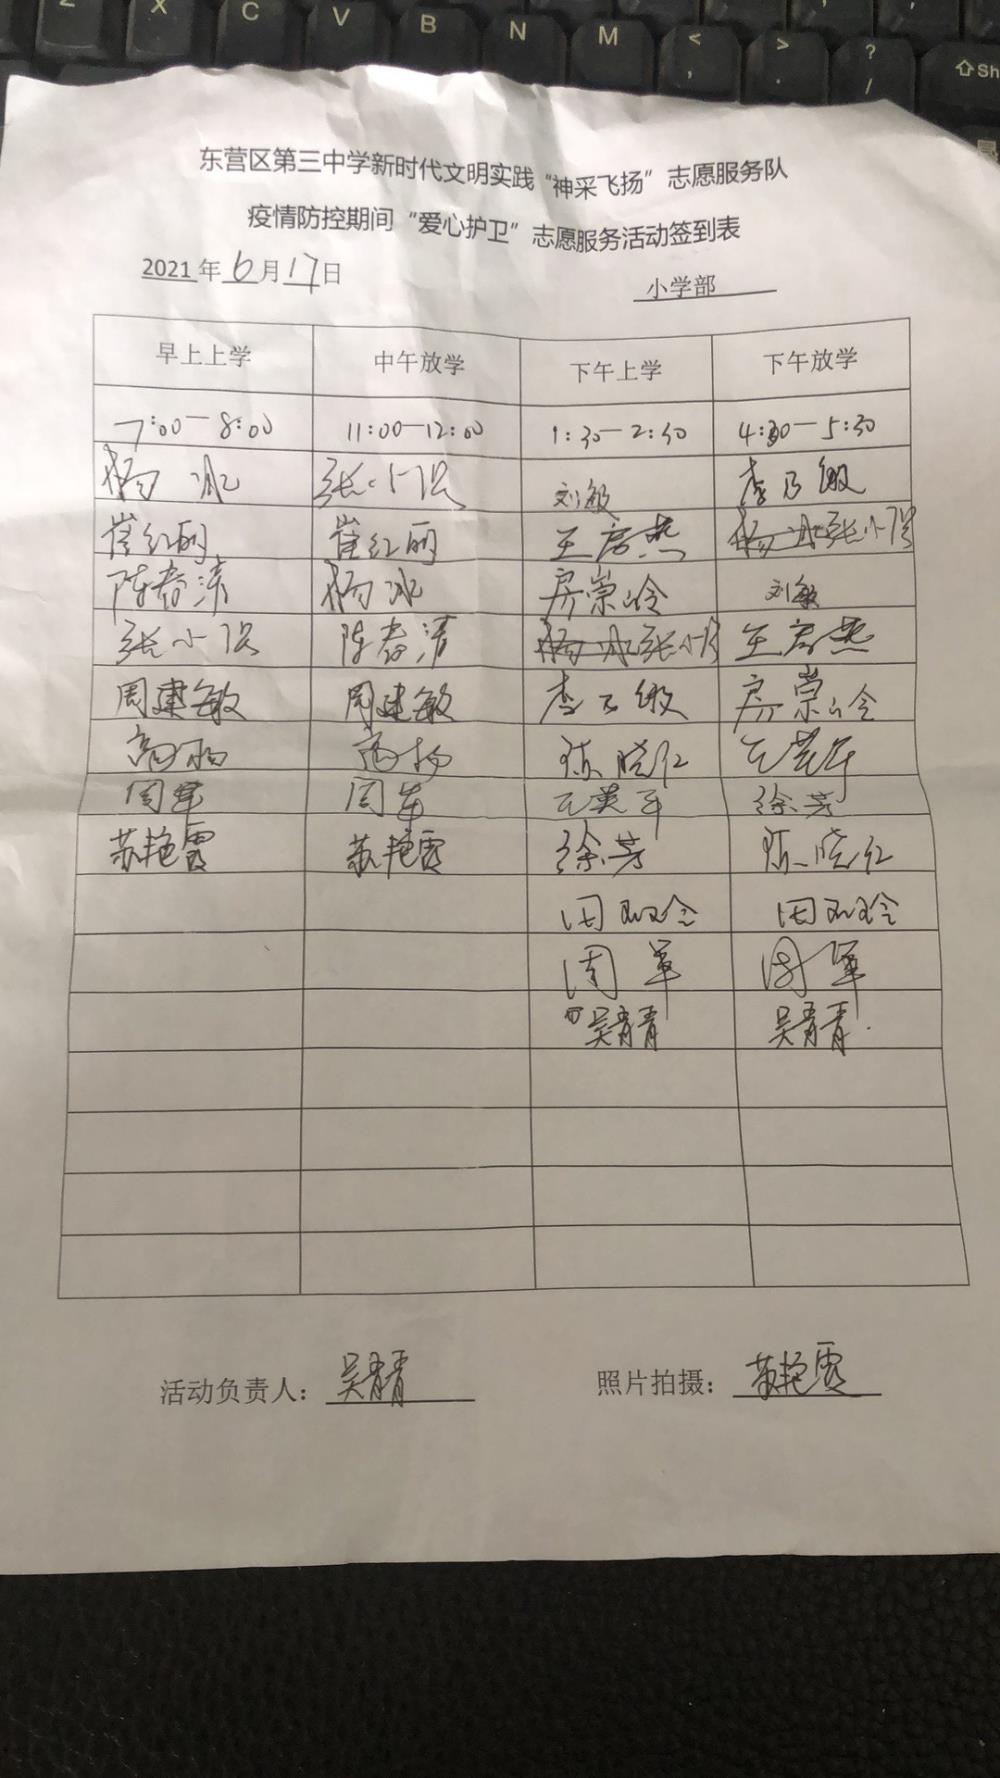 Z X C V B N M < , > . ? / ⇧Sh
东营区第三中学新时代文明实践“神采飞扬”志愿服务队
疫情防控期间“爱心护卫”志愿服务活动签到表
2021年6月17日 小学部
早上上学 中午放学 下午上学 下午放学
7:00—8:00 11:00—12:00 1:30—2:30 4:30—5:30
杨冰 张小 刘敏 李乃敏
崔红丽 崔红丽 王启燕 杨冰张小
陈春清 杨冰 房崇岭 刘敏
张小 陈春清 杨冰张小 王启燕
周建敏 周建敏 李乃敏 房崇岭
高杨 高杨 陈晓红 王英军
周军 周军 王英军 徐芳
苏艳霞 苏艳霞 徐芳 陈晓红
田 田
周军 周军
吴青青 吴青青
活动负责人：吴青青 照片拍摄：苏艳霞